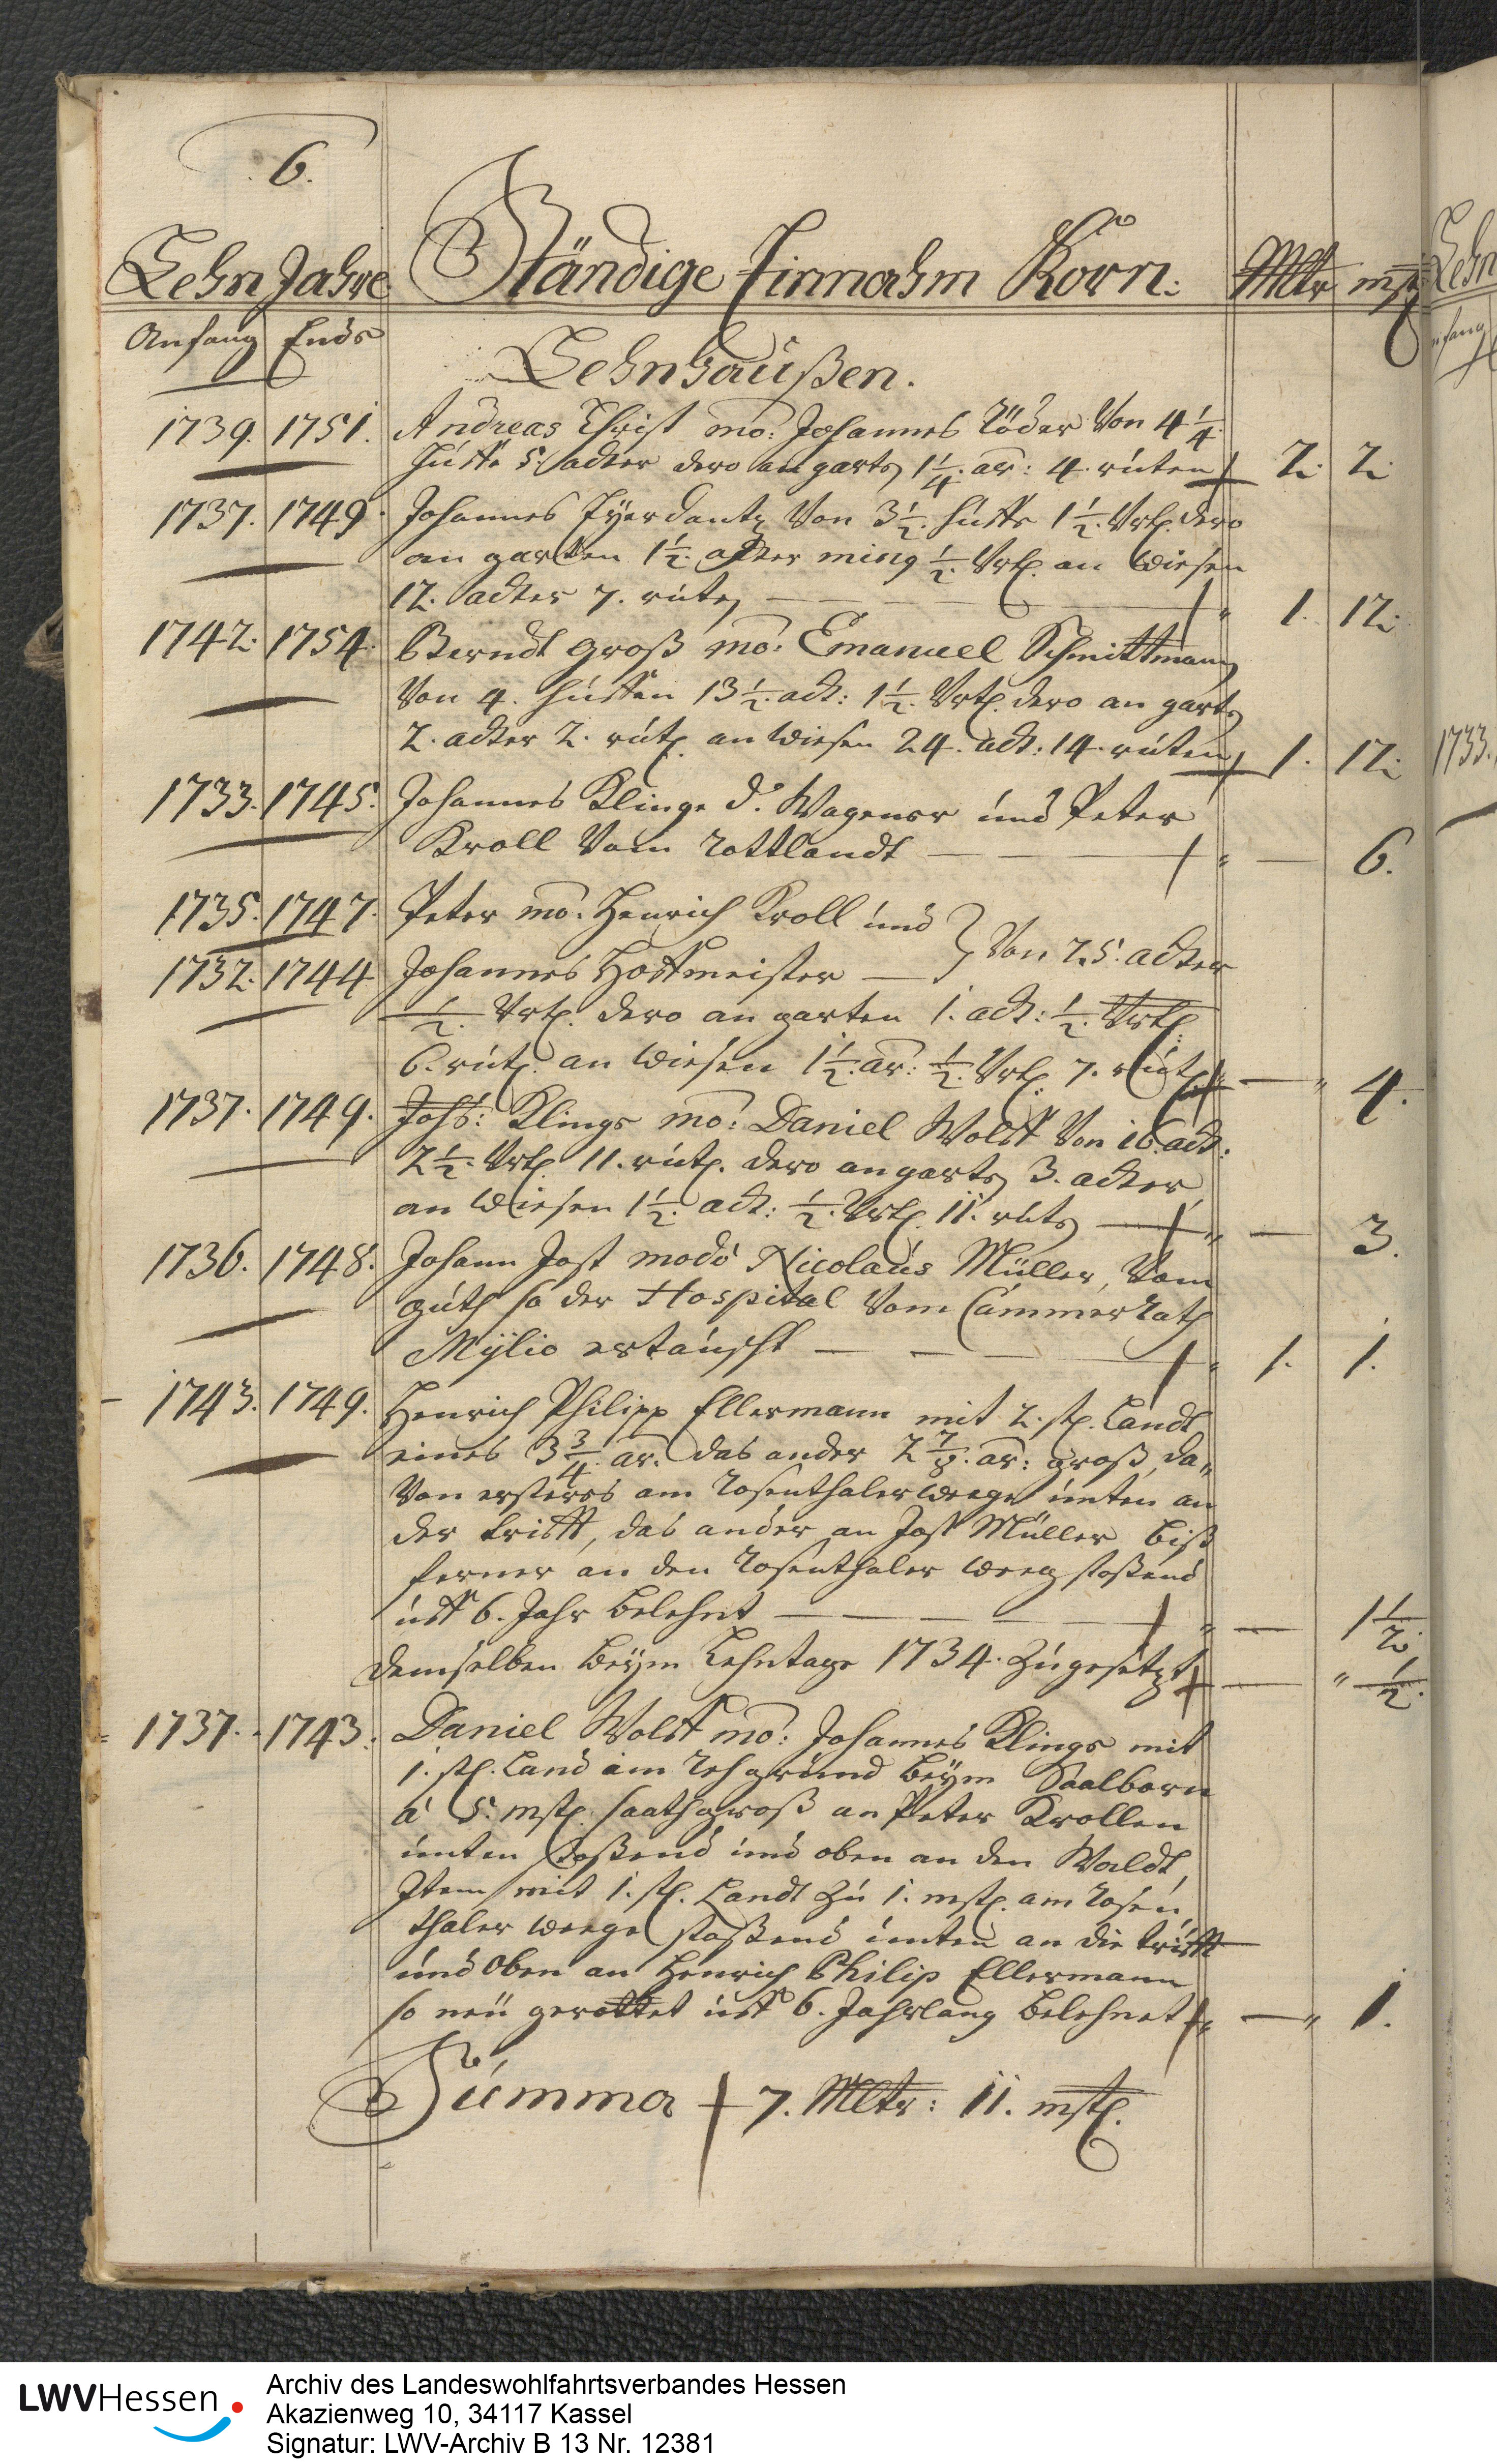 6.
Lehn Jahre Ständige Einnahm Korn: Mltr mstl
Anfang Ends
Lehnhaußen.
1739. 1751. Andreas Christ mo: Johannes Röder Von 4 1/4.
Huffe 5. acker dero an gartn 1 1/4. ar: 4. ruten 2. 2.
1737. 1749. Johannes Fyerdantz Von 3 1/2. huffe 1 1/2. Vrtl. dero
an garten 1 1/2. acker ming 1/2. Vrtl. an Wiesen
12. acker 7. rutn 1. 12.
1742. 1754. Berndt Groß mo: Emanuel Schmittmann
Von 4. huffen 13 1/2. ack: 1 1/2. Vrtl. dero an gartn
2. acker 2. rut. an Wiesen 24. ack: 14. ruten 1. 12.
1733. 1745. Johannes Klinge d. Wagener und Peter
Kroll Vom Rottlandt 6.
1735. 1747. Peter mo. Henrich Kroll und
1732. 1744 Johannes Hoffmeister Von 25. acker
1/2. Vrtl. dero an garten 1. ack: 1/2. Vrtl.
6. rut. an Wiesen 1 1/2. ar: 1/2. Vrtl. 7. rut. 4.
1737. 1749. Johs: Klings mo: Daniel Wolff Von 16. ack:
2 1/2. Vrtl. 11. rut. dero an gartn 3. acker
an Wiesen 1 1/2. ack: 1/2. Vrtl. 11. rutn 3.
1736. 1748. Johann Jost modo Nicolaus Müller, Vom
guth so der Hospital Vom Cammer Rath
Mylio ertauscht 1. 1.
1743. 1749. Henrich Philipp Ellermann mit 2. st. Landt
eines 3 3/4. ar. das ander 2 7/8. ar: groß, da„
Von ersteres am Rosenthaler weege unten an
der trifft, das ander an Jost Müller biß
ferner an den Rosenthaler weeg stoßend
uff 6. Jahr belehnt 1 1/2.
demselben beym Lehntage 1734. zugesetzt 1/2.
1737. 1743. Daniel Wolff mo: Johannes Klings mit
1. st. Land im Rehgrund beym Saalborn
á 5. mstl. saath groß an Peter Krollen
unten stoßend und oben an den Waldt,
Item mit 1. st. Landt zu 1. mstl. am Rosen
thaler weege stoßend unten an die trifft
und oben an Henrich Philip Ellermann
so neu gerottet uff 6. Jahrlang belehnet 1.
Summa 7. Mltr: 11. mstl.
1733.
LWVHessen
Archiv des Landeswohlfahrtsverbandes Hessen
Akazienweg 10, 34117 Kassel
Signatur: LWV-Archiv B 13 Nr. 12381